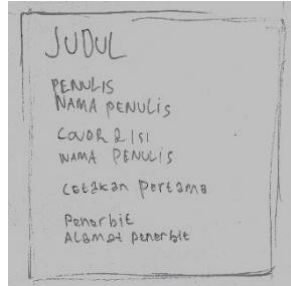 JUDUL
PENULIS
NAMA PENULIS
COVOR & ISI
NAMA PENULIS
Cetakan Pertama
Penerbit
Alamat penerbit